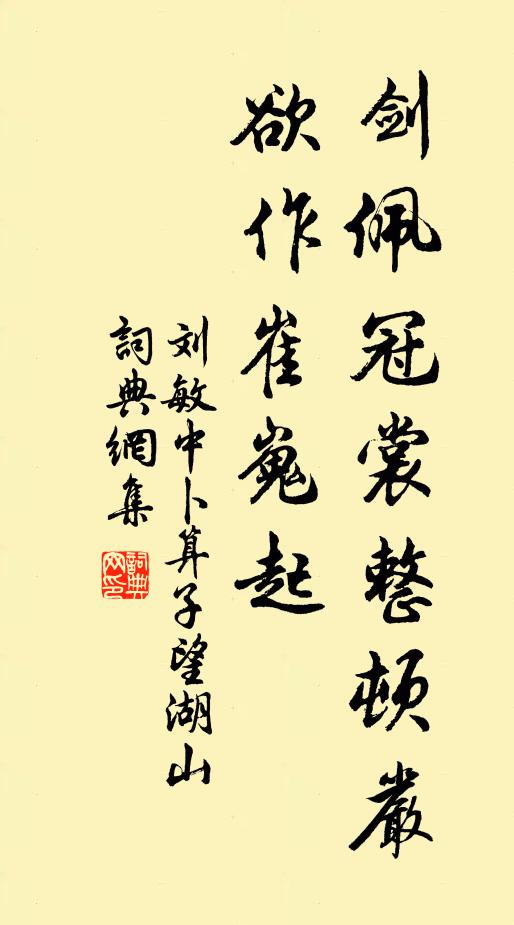 剑佩冠裳整顿嚴
欲作崔嵬起
刘敏中卜算子望湖山
詞典網集
詞典网印